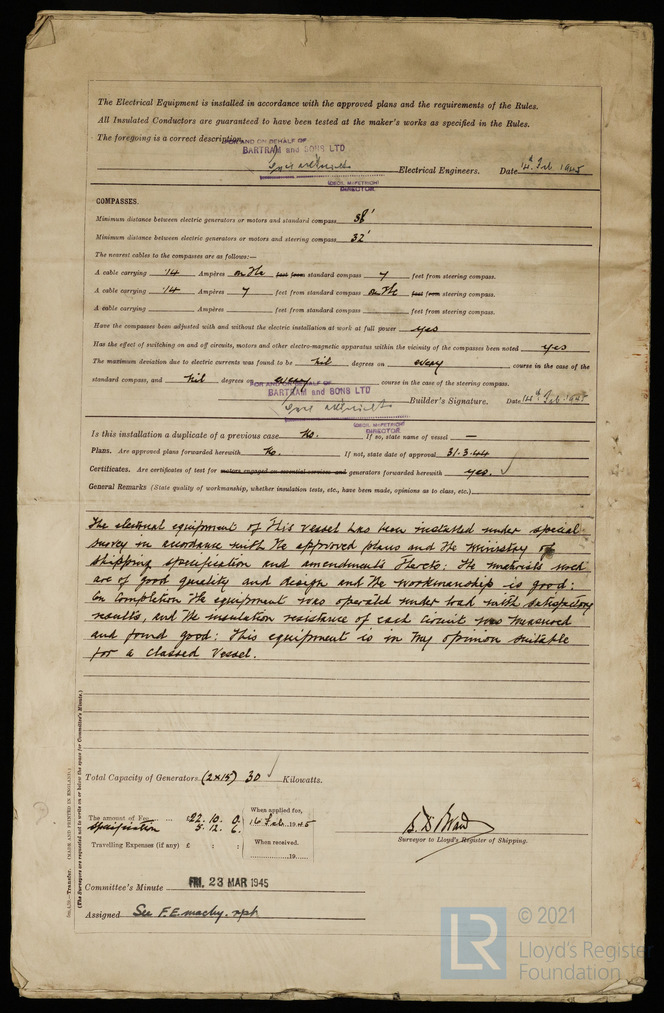 The Electrical Equipment is installed in accordance with the approved plans and the requirements of the Rules.
All Insulated Conductors are guaranteed to have been tested at the maker's works as specified in the Rules.
The foregoing is a correct description.
FOR AND ON BEHALF OF
BARTRAM and SONS LTD
Electrical Engineers. Date 14th Feb 1945
DIRECTOR.
COMPASSES.
Minimum distance between electric generators or motors and standard compass 38'
Minimum distance between electric generators or motors and steering compass 32'
The nearest cables to the compasses are as follows:—
A cable carrying 14 Ampères on the feet from standard compass 7 feet from steering compass.
A cable carrying 14 Ampères 7 feet from standard compass on the feet from steering compass.
A cable carrying Ampères feet from standard compass feet from steering compass.
Have the compasses been adjusted with and without the electric installation at work at full power yes
Has the effect of switching on and off circuits, motors and other electro-magnetic apparatus within the vicinity of the compasses been noted yes
The maximum deviation due to electric currents was found to be nil degrees on every course in the case of the
standard compass, and nil degrees on every course in the case of the steering compass.
FOR AND ON BEHALF OF
BARTRAM and SONS LTD
Builder's Signature. Date 14th Feb. 1945
DIRECTOR.
Is this installation a duplicate of a previous case No. If so, state name of vessel —
Plans. Are approved plans forwarded herewith No. If not, state date of approval 31.3.44
Certificates. Are certificates of test for motors engaged on essential services and generators forwarded herewith yes.
General Remarks (State quality of workmanship, whether insulation tests, etc., have been made, opinions as to class, etc.)
The electrical equipment of this vessel has been installed under special
survey in accordance with the approved plans and the Ministry of
Shipping specification and amendments thereto: The materials used
are of good quality and design and the workmanship is good:
On completion the equipment was operated under load with satisfactory
results, and the insulation resistance of each circuit was measured
and found good: This equipment is in my opinion suitable
for a classed vessel.
Total Capacity of Generators (2x15) 30 Kilowatts.
The amount of Fee ... £22. 10. 0.
Specification 5. 12. 6.
When applied for,
14 Feb. 1945
Travelling Expenses (if any) £ : :
When received.
19
Surveyor to Lloyd's Register of Shipping.
Committee's Minute FRI. 23 MAR 1945
Assigned See F.E. machy. rpt
Transfer. (MADE AND PRINTED IN ENGLAND.)
(The Surveyors are requested not to write on or below the space for Committee's Minute.)
LR
© 2021
Lloyd's Register
Foundation